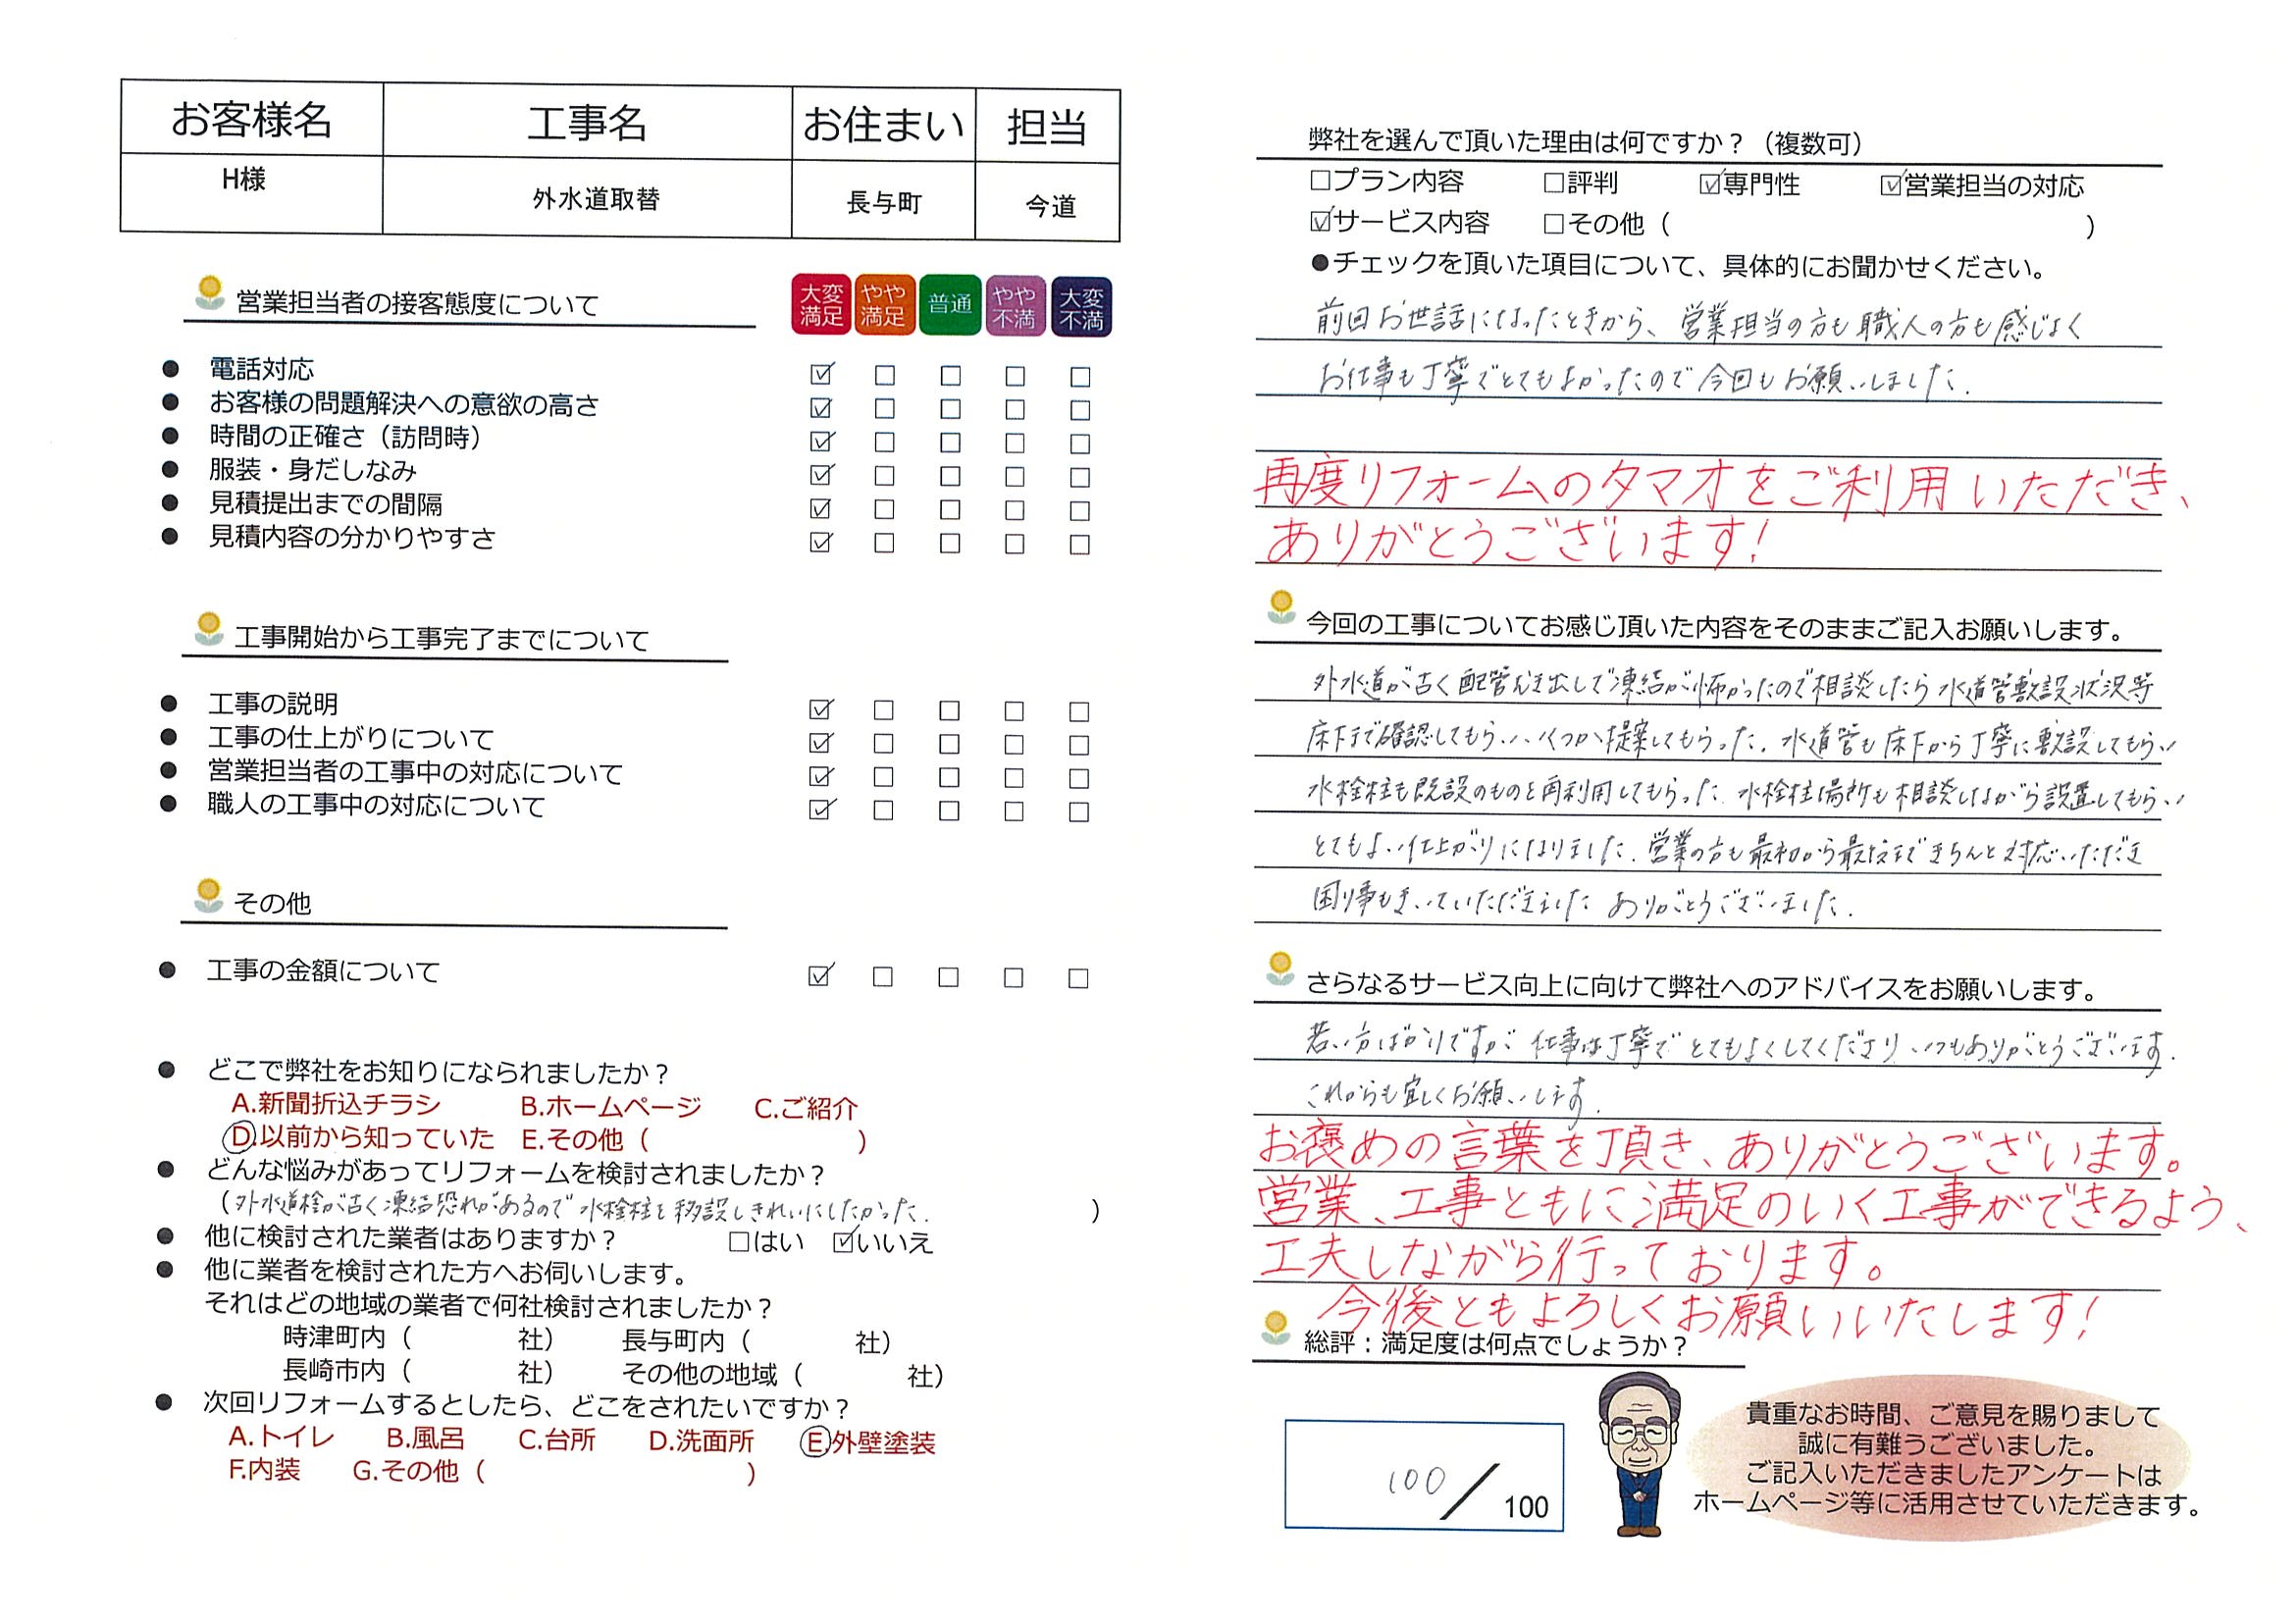 お客様名 工事名 お住まい 担当
H様 外水道取替 長与町 今道
営業担当者の接客態度について
大変満足 やや満足 普通 やや不満 大変不満
● 電話対応 ☑ □ □ □ □
● お客様の問題解決への意欲の高さ ☑ □ □ □ □
● 時間の正確さ（訪問時） ☑ □ □ □ □
● 服装・身だしなみ ☑ □ □ □ □
● 見積提出までの間隔 ☑ □ □ □ □
● 見積内容の分かりやすさ ☑ □ □ □ □
工事開始から工事完了までについて
● 工事の説明 ☑ □ □ □ □
● 工事の仕上がりについて ☑ □ □ □ □
● 営業担当者の工事中の対応について ☑ □ □ □ □
● 職人の工事中の対応について ☑ □ □ □ □
その他
● 工事の金額について ☑ □ □ □ □
● どこで弊社をお知りになられましたか？
A.新聞折込チラシ B.ホームページ C.ご紹介
D.以前から知っていた E.その他（ ）
● どんな悩みがあってリフォームを検討されましたか？
（外水道栓が古く凍結恐れがあるので水栓柱を移設しきれいにしたかった. ）
● 他に検討された業者はありますか？ □はい ☑いいえ
● 他に業者を検討された方へお伺いします。
それはどの地域の業者で何社検討されましたか？
時津町内（ 社） 長与町内（ 社）
長崎市内（ 社） その他の地域（ 社）
● 次回リフォームするとしたら、どこをされたいですか？
A.トイレ B.風呂 C.台所 D.洗面所 E.外壁塗装
F.内装 G.その他（ ）
弊社を選んで頂いた理由は何ですか？（複数可）
□プラン内容 □評判 ☑専門性 ☑営業担当の対応
☑サービス内容 □その他（ ）
●チェックを頂いた項目について、具体的にお聞かせください。
前回お世話になったときから、営業担当の方も職人の方も感じよく
お仕事も丁寧でとてもよかったので今回もお願いしました.
再度リフォームのタマオをご利用いただき、
ありがとうございます!
今回の工事についてお感じ頂いた内容をそのままご記入お願いします。
外水道が古く配管むき出しで凍結が怖かったので相談したら水道管敷設状況等
床下まで確認してもらい、いくつか提案してもらった. 水道管も床下から丁寧に敷設してもらい
水栓柱も既設のものを再利用してもらった. 水栓柱場所も相談しながら設置してもらい
とてもよい仕上がりになりました. 営業の方も最初から最後まできちんと対応いただき
困り事もきいていただきました ありがとうございました.
さらなるサービス向上に向けて弊社へのアドバイスをお願いします。
若い方ばかりですが 仕事は丁寧で とてもよくしてくださり いつもありがとうございます.
これからも宜しくお願いします.
お褒めの言葉を頂き、ありがとうございます。
営業、工事ともに満足のいく工事ができるよう、
工夫しながら行っております。
今後ともよろしくお願いいたします!
総評：満足度は何点でしょうか？
100/100
貴重なお時間、ご意見を賜りまして
誠に有難うございました。
ご記入いただきましたアンケートは
ホームページ等に活用させていただきます。